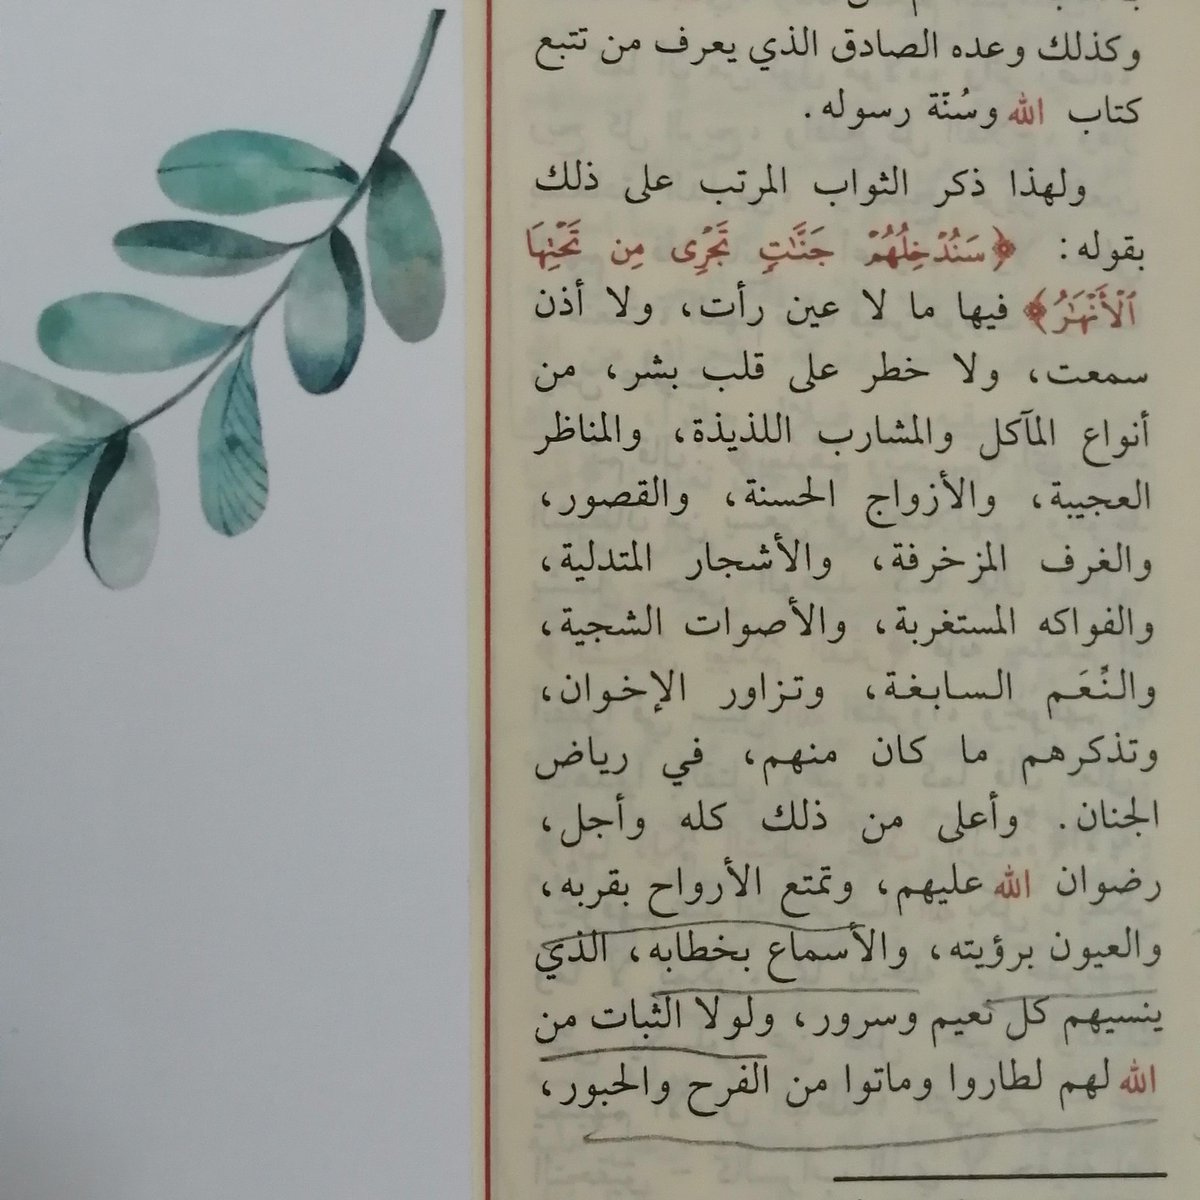 وكذلك وعده الصادق الذي يعرف من تتبع
كتاب الله وسُنّة رسوله.
ولهذا ذكر الثواب المرتب على ذلك
بقوله: ﴿سَنُدْخِلُهُمْ جَنَّٰتٍ تَجْرِى مِن تَحْتِهَا
ٱلْأَنْهَٰرُ﴾ فيها ما لا عين رأت، ولا أذن
سمعت، ولا خطر على قلب بشر، من
أنواع المآكل والمشارب اللذيذة، والمناظر
العجيبة، والأزواج الحسنة، والقصور،
والغرف المزخرفة، والأشجار المتدلية،
والفواكه المستغربة، والأصوات الشجية،
والنِّعَم السابغة، وتزاور الإخوان،
وتذكرهم ما كان منهم، في رياض
الجنان. وأعلى من ذلك كله وأجل،
رضوان الله عليهم، وتمتع الأرواح بقربه،
والعيون برؤيته، والأسماع بخطابه، الذي
ينسيهم كل نعيم وسرور، ولولا الثبات من
الله لهم لطاروا وماتوا من الفرح والحبور،